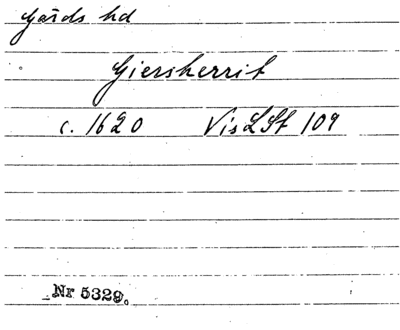 Gärds hd
Giersherrit
c. 1620 VisLSt 109
Nr 5329.